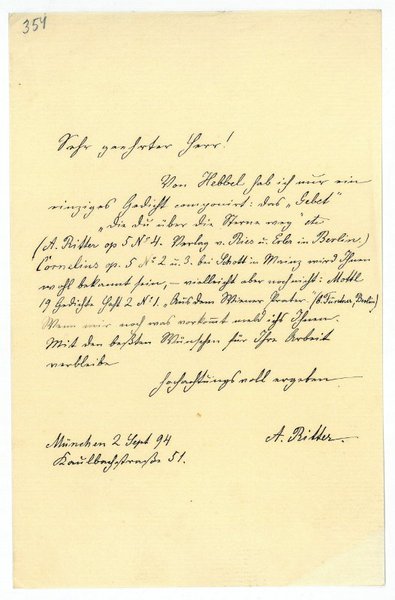 354
Sehr geehrter Herr!
Von Hebbel hab ich nur ein
einziges Gedicht componirt: das „Gebet"
„Die du über die Sterne weg" etc
(A. Ritter op 5 No 4. Verlag v. Ries u. Erler in Berlin.)
Cornelius op. 5 No 2 u. 3. bei Schott in Mainz wird Ihnen
wohl bekannt sein, – vielleicht aber noch nicht: Mottl
19 Gedichte Heft 2 No 1 „Aus dem Wiener Prater" (Berlin)
Wenn mir noch was vorkommt meld ichs Ihnen.
Mit den beßten Wünschen für Ihre Arbeit
verbleibe
hochachtungsvoll ergeben
A. Ritter.
München 2 Sept 94
Kaulbachstraße 51.